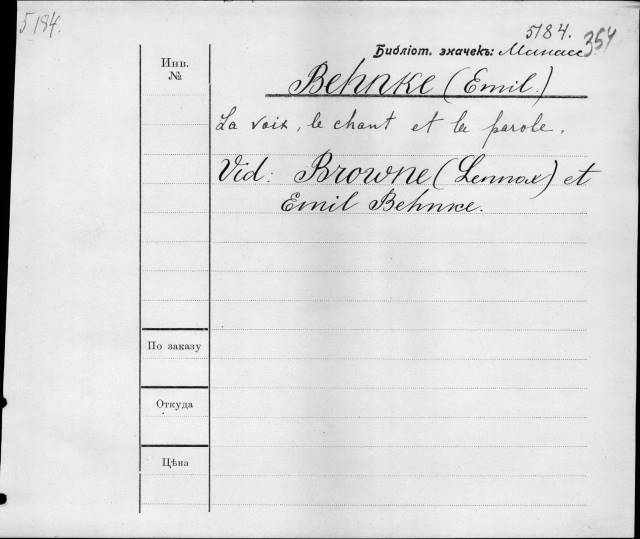 5184.
5184.
354
Библіот. значекъ: Манасс
Инв.
№
Behnke (Emil.)
La voix, le chant et la parole.
Vid: Browne (Lennox) et
Emil Behnke.
По заказу
Откуда
Цѣна